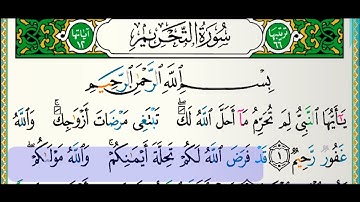 ترتيبها ٦٦ سُورَةُ التَّحْرِيمِ آياتها ١٢
بِسْمِ اللَّهِ الرَّحْمَٰنِ الرَّحِيمِ
يَا أَيُّهَا النَّبِيُّ لِمَ تُحَرِّمُ مَا أَحَلَّ اللَّهُ لَكَ ۖ تَبْتَغِي مَرْضَاتَ أَزْوَاجِكَ ۚ وَاللَّهُ
غَفُورٌ رَّحِيمٌ ١ قَدْ فَرَضَ اللَّهُ لَكُمْ تَحِلَّةَ أَيْمَانِكُمْ ۚ وَاللَّهُ مَوْلَاكُمْ ۖ